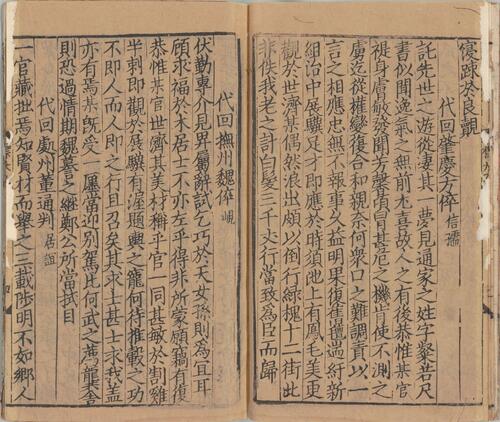 寢踈於良覿
代回肇慶方倅 信孺
託先世之遊從淒其一夢見通家之姓字粲若尺
書似聞逸氣之無前尤喜故人之有後恭惟某官
禔身膚敏發聞芳馨頃冐甚危之機肯使不測之
虜迄從權變復合和親奈何衆口之難調責以一
言之相應忠無不報事乆益明果復舊班端紆新
組治中展驥足才即應於時須池上有鳳毛美更
觀於世濟某偶然浪出頗以倒行緑槐十二街此
非佚我老之計白髮三千丈行當致爲臣而歸
代回撫州魏倅 峴
伏勤專介見畀屬辭試乞巧於天女孫則爲宜耳
顧求福於木居士不亦左乎得非所蒙願竊有復
恭惟某官世濟其美材稱乎官一同甚敏於割雞
半刺即觀於展驥有渥題輿之寵何待推轂之功
不即人而人即之行且召矣其求士甚士求我蓋
亦有焉某既受一廛當迎别駕比何武之薦龔舍
則恐過情期魏謩之継鄭公所當拭目
代回處州董通判 居誼
一官藏拙焉知賢材而舉之三載陟明不如鄉人